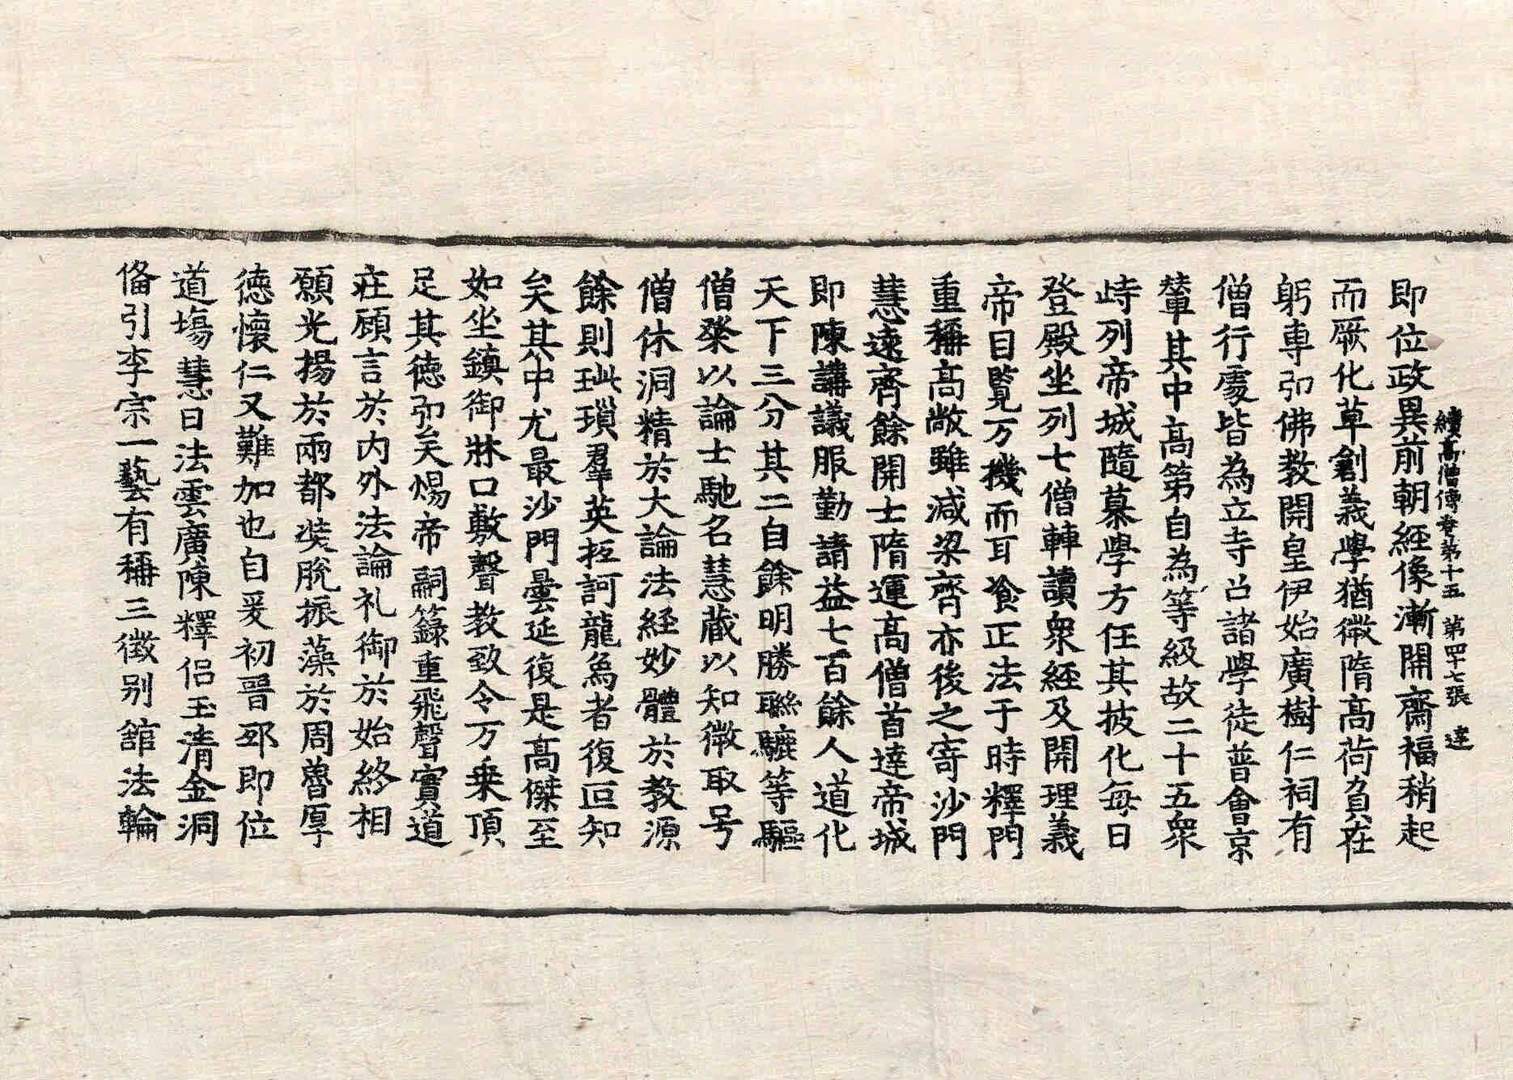 續高僧傳卷第十五　第四十七張　達
即位政異前朝經像漸開齋福稍起
而厥化草創義學猶微隋高荷負在
躬專弘佛教開皇伊始廣樹仁祠有
僧行處皆為立寺召諸學徒普會京
輦其中高第自為等級故二十五衆
峙列帝城隨慕學方任其披化每日
登殿坐列七僧轉讀衆經及開理義
帝目覽万機而耳飡正法于時釋門
重稱高敞雖減梁齊亦後之寄沙門
慧遠齊餘開士隋運高僧首達帝城
即陳講議服勤請益七百餘人道化
天下三分其二自餘明勝聮鑣等驅
僧粲以論士馳名慧藏以知微取号
僧休洞精於大論法経妙體於教源
餘則玼瑣羣英抠訶龍象者復叵知
矣其中尤最沙門曇延復是高傑至
如坐鎮御牀口敷聲教致令万乗頂
足其徳弘矣煬帝嗣籙重飛聲實道
莊顧言於内外法論礼御於始終相
願光揚於兩都裝脫振藻於周魯厚
徳懷仁又難加也自爰初晉邸即位
道場慧日法雲廣陳釋侣玉清金洞
俻引李宗一藝有稱三徵别舘法輪